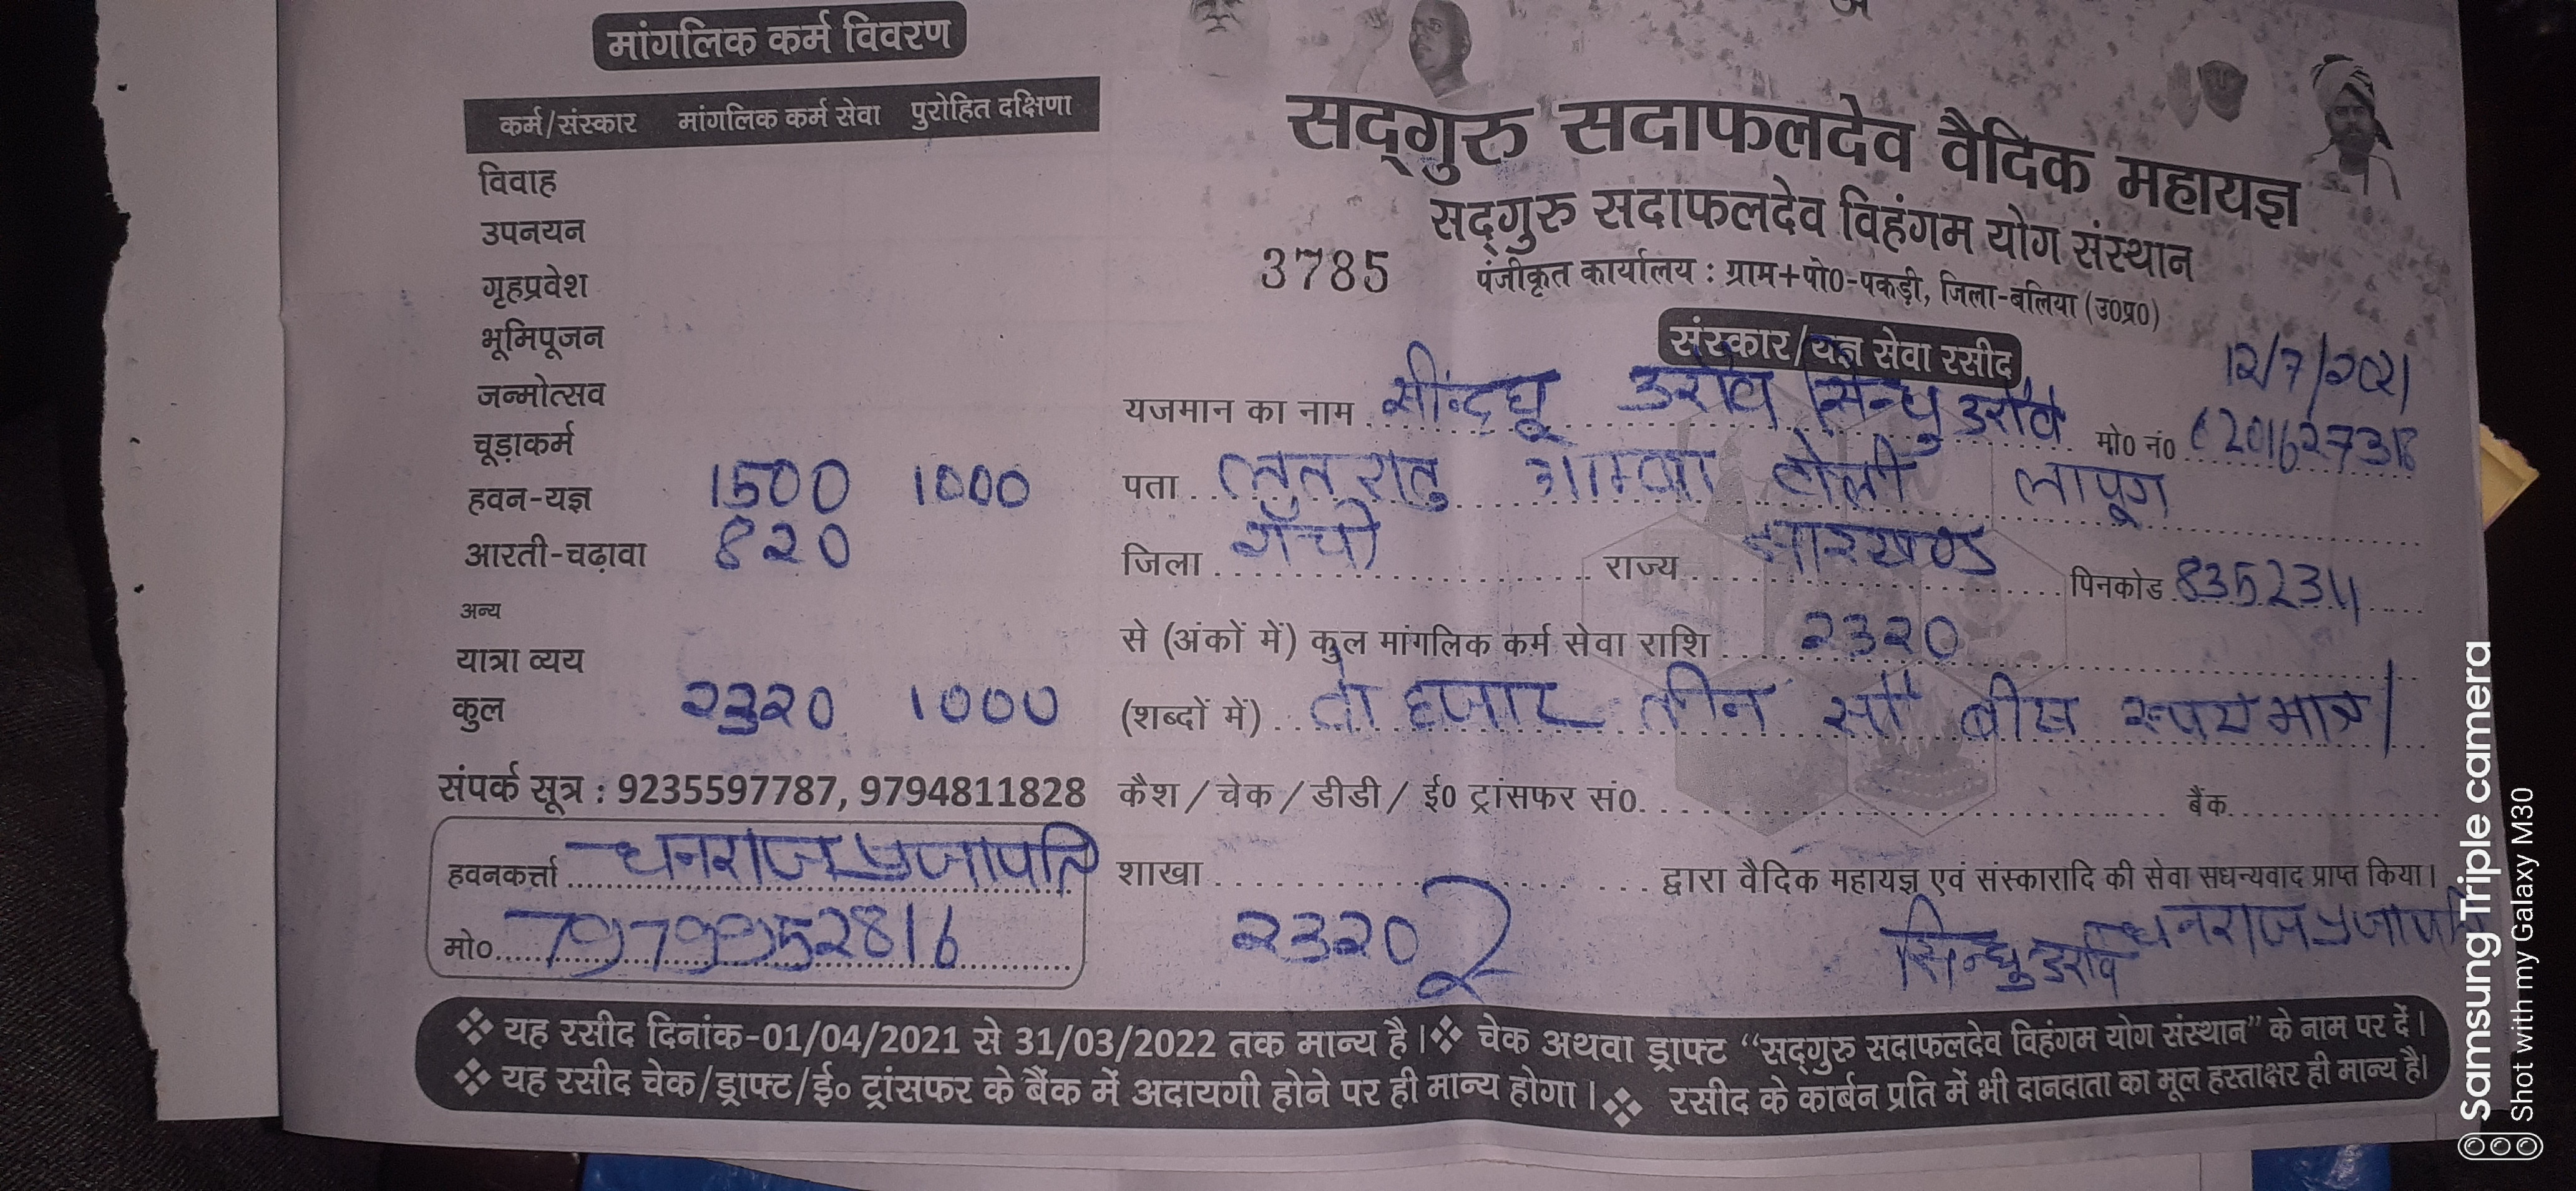 मांगलिक कर्म विवरण
कर्म/संस्कार मांगलिक कर्म सेवा पुरोहित दक्षिणा
विवाह
उपनयन
गृहप्रवेश
भूमिपूजन
जन्मोत्सव
चूड़ाकर्म
हवन-यज्ञ 1500 1000
आरती-चढ़ावा 820
अन्य
यात्रा व्यय
कुल 2320 1000
संपर्क सूत्र : 9235597787, 9794811828
हवनकर्त्ता धनराज प्रजापति
मो० 7979952816
सद्‌गुरु सदाफलदेव वैदिक महायज्ञ
सद्‌गुरु सदाफलदेव विहंगम योग संस्थान
3785 पंजीकृत कार्यालय : ग्राम+पो0-पकड़ी, जिला-बलिया (उ0प्र0)
संस्कार/यज्ञ सेवा रसीद
12/7/2021
यजमान का नाम सीन्दधू उराँव / सिन्धु उराँव मो0 नं0
पता टोली लापुग
जिला राँची राज्य झारखण्ड पिनकोड
से (अंकों में) कुल मांगलिक कर्म सेवा राशि 2320
(शब्दों में) दो हजार तीन सौ बीस रूपये मात्र/
कैश / चेक / डीडी / ई0 ट्रांसफर सं0. बैंक
शाखा द्वारा वैदिक महायज्ञ एवं संस्कारादि की सेवा सधन्यवाद प्राप्त किया।
2320 सिन्धु उराँव धनराज प्रजापति
❖ यह रसीद दिनांक-01/04/2021 से 31/03/2022 तक मान्य है। ❖ चेक अथवा ड्राफ्ट “सद्‌गुरु सदाफलदेव विहंगम योग संस्थान” के नाम पर दें।
❖ यह रसीद चेक/ड्राफ्ट/ई० ट्रांसफर के बैंक में अदायगी होने पर ही मान्य होगा। ❖ रसीद के कार्बन प्रति में भी दानदाता का मूल हस्ताक्षर ही मान्य है।
Samsung Triple camera
Shot with my Galaxy M30